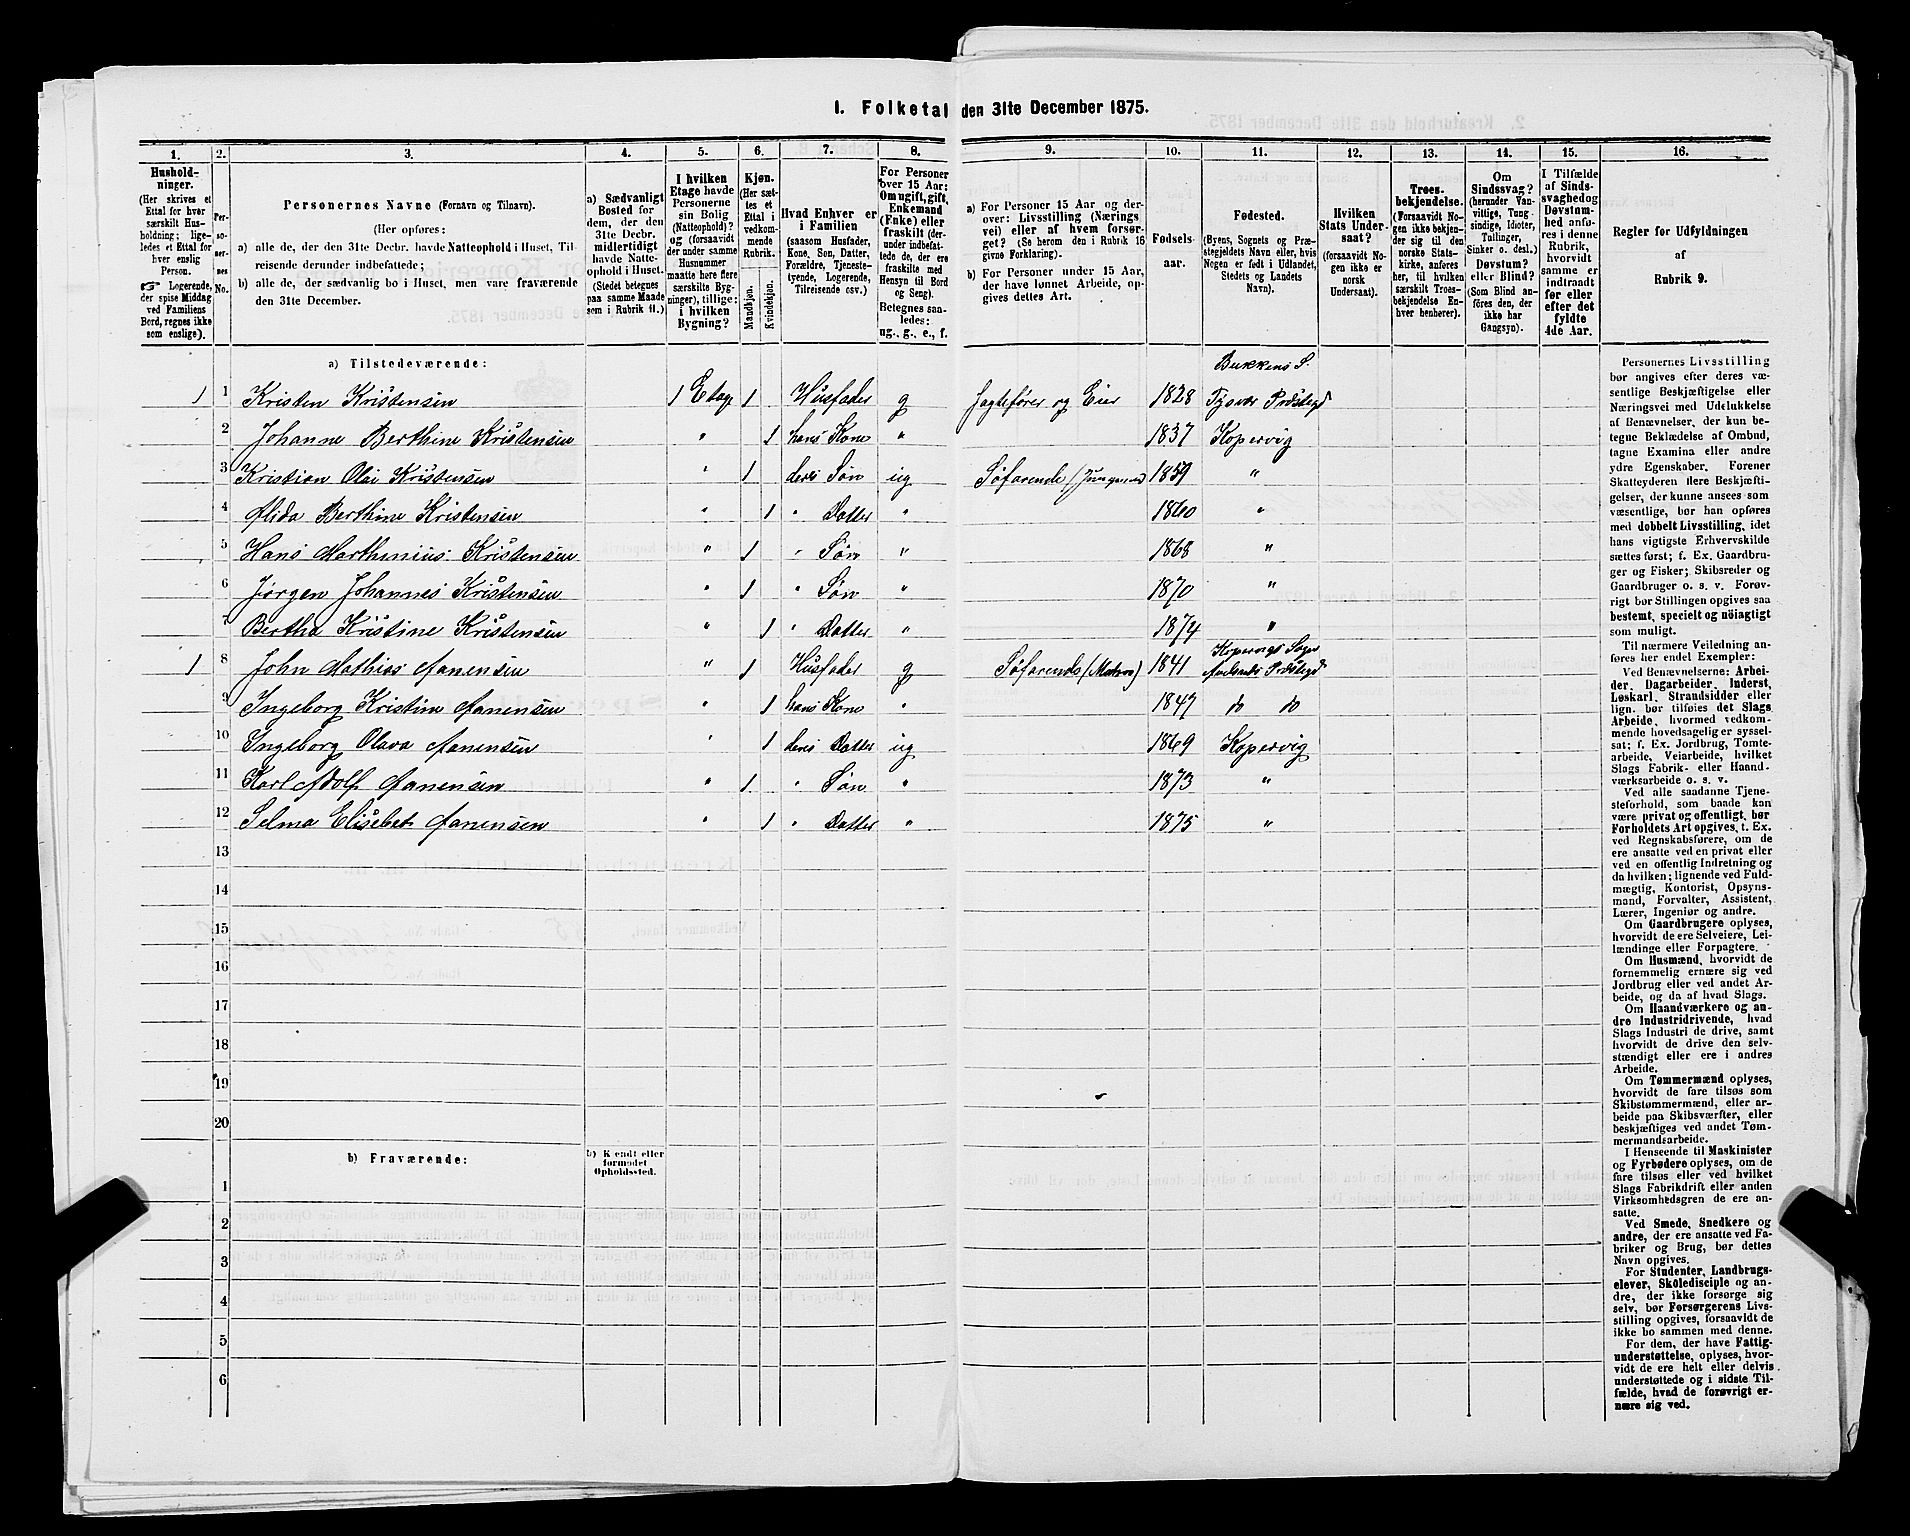 1. Folketal den 31te December 1875.
1. 2. 3. 4. 5. 6. 7. 8. 9. 10. 11. 12. 13. 14. 15. 16.
Hushold-
ninger.
(Her skrives et
Ettal for hver
særskilt Hus-
holdning; lige-
ledes et Ettal for
hver enslig
Person.
☞ Logerende,
der spise Middag
ved Familiens
Bord, regnes ikke
som enslige).
Per-
so-
ner-
nes
No.
Personernes Navne (Fornavn og Tilnavn).
(Her opføres:
a) alle de, der den 31te Decbr. havde Natteophold i Huset, Til-
reisende derunder indbefattede;
b) alle de, der sædvanlig bo i Huset, men vare fraværende
den 31te December.
a) Sædvanligt
Bosted for
dem, der den
31te Decbr.
midlertidigt
havde Natte-
ophold i Huset.
(Stedet betegnes
paa samme Maade
som i Rubrik 11.)
I hvilken
Etage havde
Personerne
sin Bolig
(Natteophold)?
og (forsaavidt
der under samme
Husnummer
maatte høre flere
særskilte Byg-
ninger), tillige:
i hvilken
Bygning?
Kjøn.
(Her sæt-
tes et
Ettal i
vedkom-
mende
Rubrik.
Mandkjøn.
Kvindekjøn.
Hvad Enhver er
i Familien
(saasom Husfader,
Kone, Søn, Datter,
Forældre, Tjeneste-
tyende, Logerende,
Tilreisende osv.)
For Personer
over 15 Aar:
Om ugift, gift,
Enkemand
(Enke) eller
fraskilt (der-
under indbefat-
tede de, der ere
fraskilte med
Hensyn til Bord
og Seng).
Betegnes saa-
ledes:
ug., g., e., f.
a) For Personer 15 Aar og der-
over: Livsstilling (Nærings
vei) eller af hvem forsør-
get? (Se herom den i Rubrik 16
givne Forklaring).
b) For Personer under 15 Aar,
der have lønnet Arbeide, op-
gives dettes Art.
Fødsels-
aar.
Fødested.
(Byens, Sognets og Præ-
stegjeldets Navn eller, hvis
Nogen er født i Udlandet,
Stedets og Landets
Navn).
Hvilken
Stats Under-
saat?
(forsaavidt No-
gen ikke er
norsk
Undersaat).
Troes-
bekjendelse.
(Forsaavidt No-
gen ikke bekjen-
der sig til den
norske Stats-
kirke, anføres
her, til hvilken
særskilt Troes-
bekjendelse En-
hver henhører).
Om
Sindssvag?
(herunder Van-
vittige, Tung-
sindige, Idioter,
Tullinger,
Sinker o. desl.)
Døvstum?
eller Blind?
(Som Blind an-
føres den, der
ikke har
Gangsyn).
I Tilfælde
af Sinds-
svaghed og
Døvstum-
hed anfø-
res i denne
Rubrik,
hvorvidt
samme er
indtraadt
før eller
efter det
fyldte
4de Aar.
Regler for Udfyldningen
af
Rubrik 9.
a) Tilstedeværende:
Bukkens S.
1 1 Kristen Kristensen 1 Etage 1 Husfader g Jagtefører og Eier 1828 Tysvær Præstegd
2 Johanne Berthine Kristensen " 1 hans Kone " 1837 Kopervig
3 Kristian Olai Kristensen " 1 deres Søn ug Søfarende (Jungmand) 1859 "
4 Alida Berthine Kristensen " 1 " Datter " 1860 "
5 Hans Marthinius Kristensen " 1 " Søn " 1868 "
6 Jørgen Johannes Kristensen " 1 " Søn " 1870 "
7 Bertha Kristine Kristensen " 1 " Datter " 1874 "
Kopervigs Sogn
1 8 John Mathias Aanensen " 1 Husfader g Søfarende (Matros) 1841 Præstegd
9 Ingeborg Kristine Aanensen " 1 hans Kone " 1847 do do
10 Ingeborg Olava Aanensen " 1 deres Datter ug 1869 Kopervig
11 Karl Adolf Aanensen " 1 " Søn " 1873 "
12 Selma Elisebet Aanensen " 1 " Datter " 1875 "
13
14
15
16
17
18
19
20
b) Fraværende:
b) Kjendt eller
formodet
Opholdssted.
1
2
3
4
5
6
Personernes Livsstilling
bør angives efter deres væ-
sentlige Beskjæftigelse eller
Næringsvei med Udelukkelse
af Benævnelser, der kun be-
tegne Beklædelse af Ombud,
tagne Examina eller andre
ydre Egenskaber. Forener
Skatteyderen flere Beskjæfti-
gelser, der kunne ansees som
væsentlige, bør han opføres
med dobbelt Livsstilling, idet
hans vigtigste Erhvervskilde
sættes først; f. Ex. Gaardbru-
ger og Fisker; Skibsreder og
Gaardbruger o. s. v. Forøv-
rigt bør Stillingen opgives saa
bestemt, specielt og nöiagtigt
som muligt.
Til nærmere Veiledning an-
føres her endel Exempler:
Ved Benævnelserne: Arbei-
der, Dagarbeider, Inderst,
Løskarl, Strandsidder eller
lign. bør tilføies det Slags
Arbeide, hvormed vedkom-
mende hovedsagelig er syssel-
sat; f. Ex. Jordbrug, Tomte-
arbeide, Veiarbeide, hvilket
Slags Fabrik- eller Haand-
værksarbeide o. s. v.
Ved alle saadanne Tjene-
steforhold, som baade kan
være privat og offentligt, bør
Forholdets Art opgives, t. Ex.
ved Regnskabsførere, om de
ere ansatte ved en privat eller
ved en offentlig Indretning og
da hvilken; lignende ved Fuld-
mægtig, Kontorist, Opsyns-
mand, Forvalter, Assistent,
Lærer, Ingeniør og andre.
Om Gaardbrugere oplyses,
hvorvidt de ere Selveiere, Lei-
lændinge eller Forpagtere.
Om Husmænd, hvorvidt de
fornemmelig ernære sig ved
Jordbrug eller ved andet Ar-
beide, og da af hvad Slags.
Om Haandværkere og an-
dre Industridrivende, hvad
Slags Industri de drive, samt
hvorvidt de drive den selv-
stændigt eller ere i andres
Arbeide.
Om Tømmermænd oplyses,
hvorvidt de fare tilsøs som
Skibstømmermænd, eller ar-
beide paa Skibsværfter, eller
beskjæftiges ved andet Tøm-
mermandsarbeide.
I Henseende til Maskinister
og Fyrbødere oplyses, om de
fare tilsøs eller ved hvilket
Slags Fabrikdrift eller anden
Virksomhedsgren de ere an-
satte.
Ved Smede, Snedkere og
andre, der ere ansatte ved Fa-
briker og Brug, bør dettes
Navn opgives.
For Studenter, Landbrugs-
elever, Skoledisciple og an-
dre, der ikke forsørge sig
selv, bør Forsørgerens Livs-
stilling opgives, forsaavidt de
ikke bo sammen med denne.
For dem, der have Fattig-
understøttelse, oplyses, hvor-
vidt de ere helt eller delvis
understøttede og i sidste Til-
fælde, hvad de forøvrigt er-
nære sig ved.